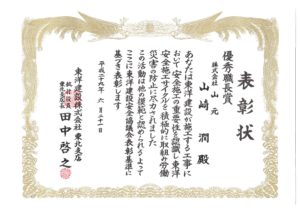 表彰状
優秀職長賞
株式会社 山元
山崎 潤 殿
あなたは東洋建設が施工する工事に
おいて安全施工の重要性を認識し東洋
安全施工サイクルを積極的に取組み労働
災害の防止に尽力されました
この活動は他の模範と認められるよって
ここに東洋建設安全協議会表彰基準に
基づき表彰します
平成二十九年 六月二十一日
東洋建設株式会社 東北支店
執行役員
東北支店長 田中啓之